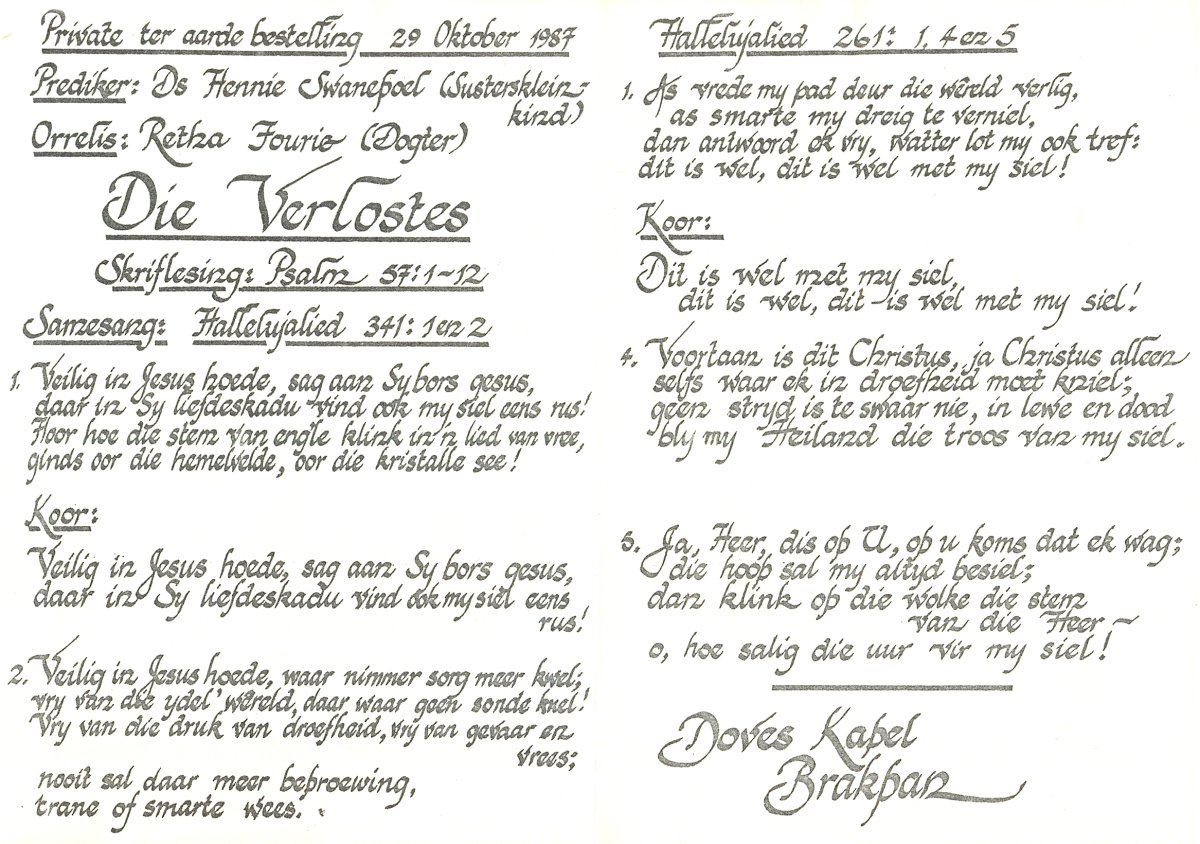 Private ter aarde bestelling 29 Oktober 1987
Prediker: Ds Hennie Swanepoel (Sustersklein-
kind)
Orrelis: Retha Fourie (Dogter)
Die Verlostes
Skriflesing: Psalm 57:1-12
Samesang: Hallelujalied 341: 1 en 2
1. Veilig in Jesus hoede, sag aan Sy bors gesus,
daar in Sy liefdeskadu vind ook my siel eens rus!
Hoor hoe die stem van engle klink in 'n lied van vree,
ginds oor die hemelvelde, oor die kristalle see!
Koor:
Veilig in Jesus hoede, sag aan Sy bors gesus,
daar in Sy liefdeskadu vind ook my siel eens
rus!
2. Veilig in Jesus hoede, waar nimmer sorg meer kwel;
vry van die ydel' wêreld, daar waar geen sonde knel!
Vry van die druk van droefheid, vry van gevaar en
vrees;
nooit sal daar meer beproewing,
trane of smarte wees.
Hallelujalied 261: 1, 4 en 5
1. As vrede my pad deur die wêreld verlig,
as smarte my dreig te verniel,
dan antwoord ek vry, watter lot my ook tref:
dit is wel, dit is wel met my siel!
Koor:
Dit is wel met my siel,
dit is wel, dit is wel met my siel!
4. Voortaan is dit Christus, ja Christus alleen
selfs waar ek in droefheid moet kniel;
geen stryd is te swaar nie, in lewe en dood
bly my Heiland die troos van my siel.
5. Ja, Heer, dis op U, op u koms dat ek wag;
die hoop sal my altyd besiel;
dan klink op die wolke die stem
van die Heer ~
o, hoe salig die uur vir my siel!
Doves Kapel
Brakpan